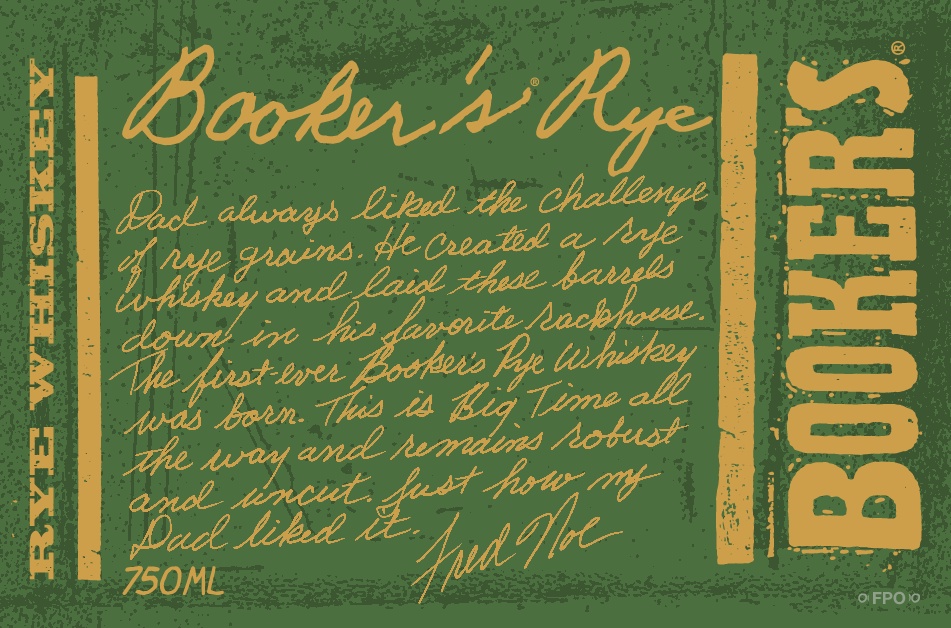 RYE WHISKEY
Booker's® Rye
Dad always liked the challenge
of rye grains. He created a rye
whiskey and laid these barrels
down in his favorite rackhouse.
The first-ever Booker's Rye Whiskey
was born. This is Big Time all
the way and remains robust
and uncut. Just how my
Dad liked it.
Fred Noe
750ML
BOOKER'S®
FPO